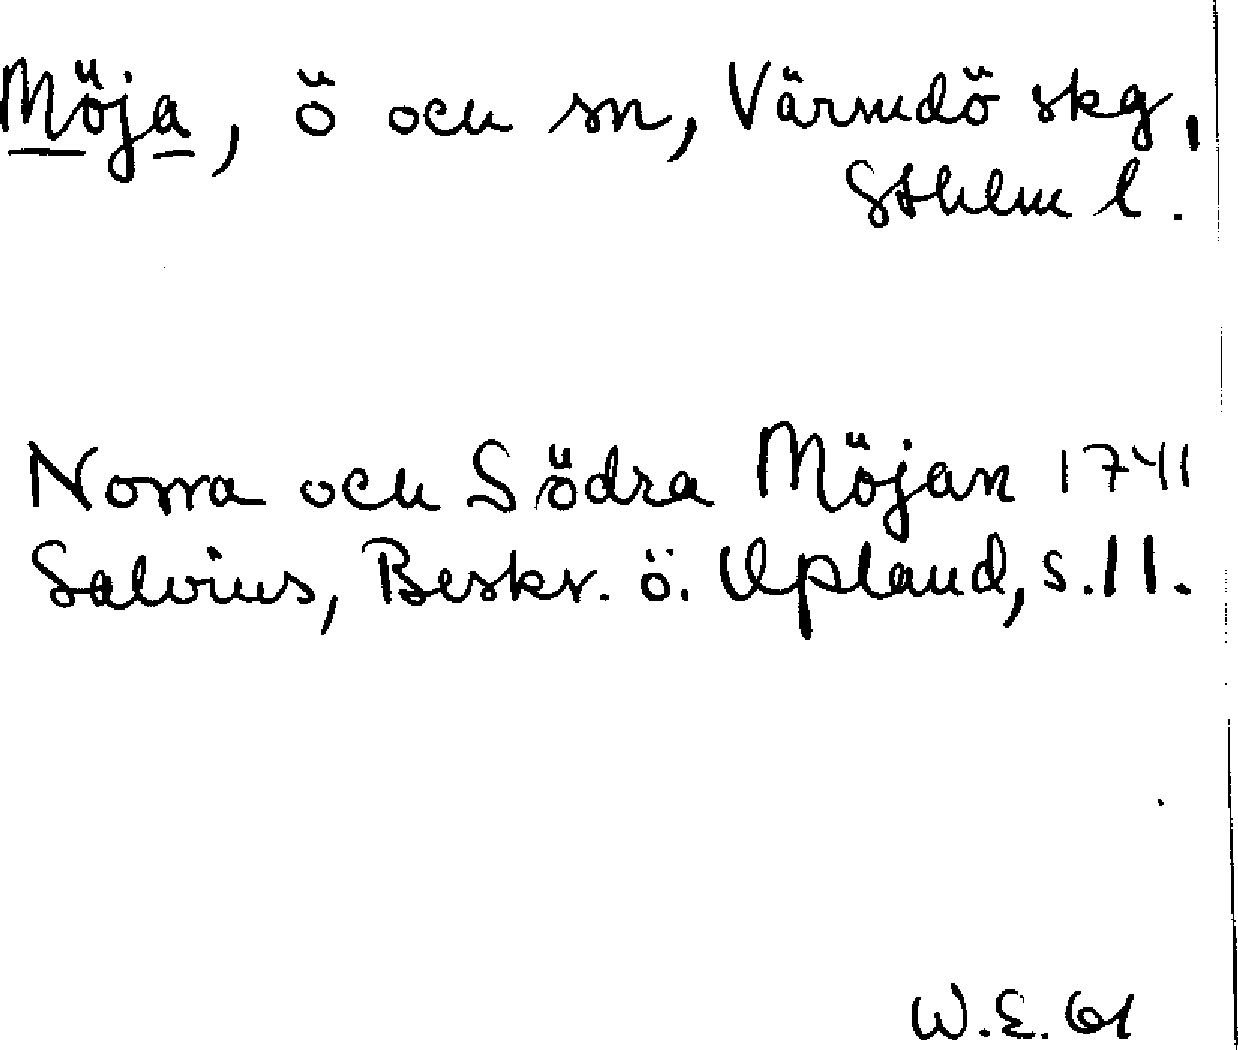 Möja, ö och sn, Värmdö skg,
Sthlm l.
Norra och Södra Möjan 1741
Salvius, Beskr. ö. Upland, s. 11.
W.E. 61